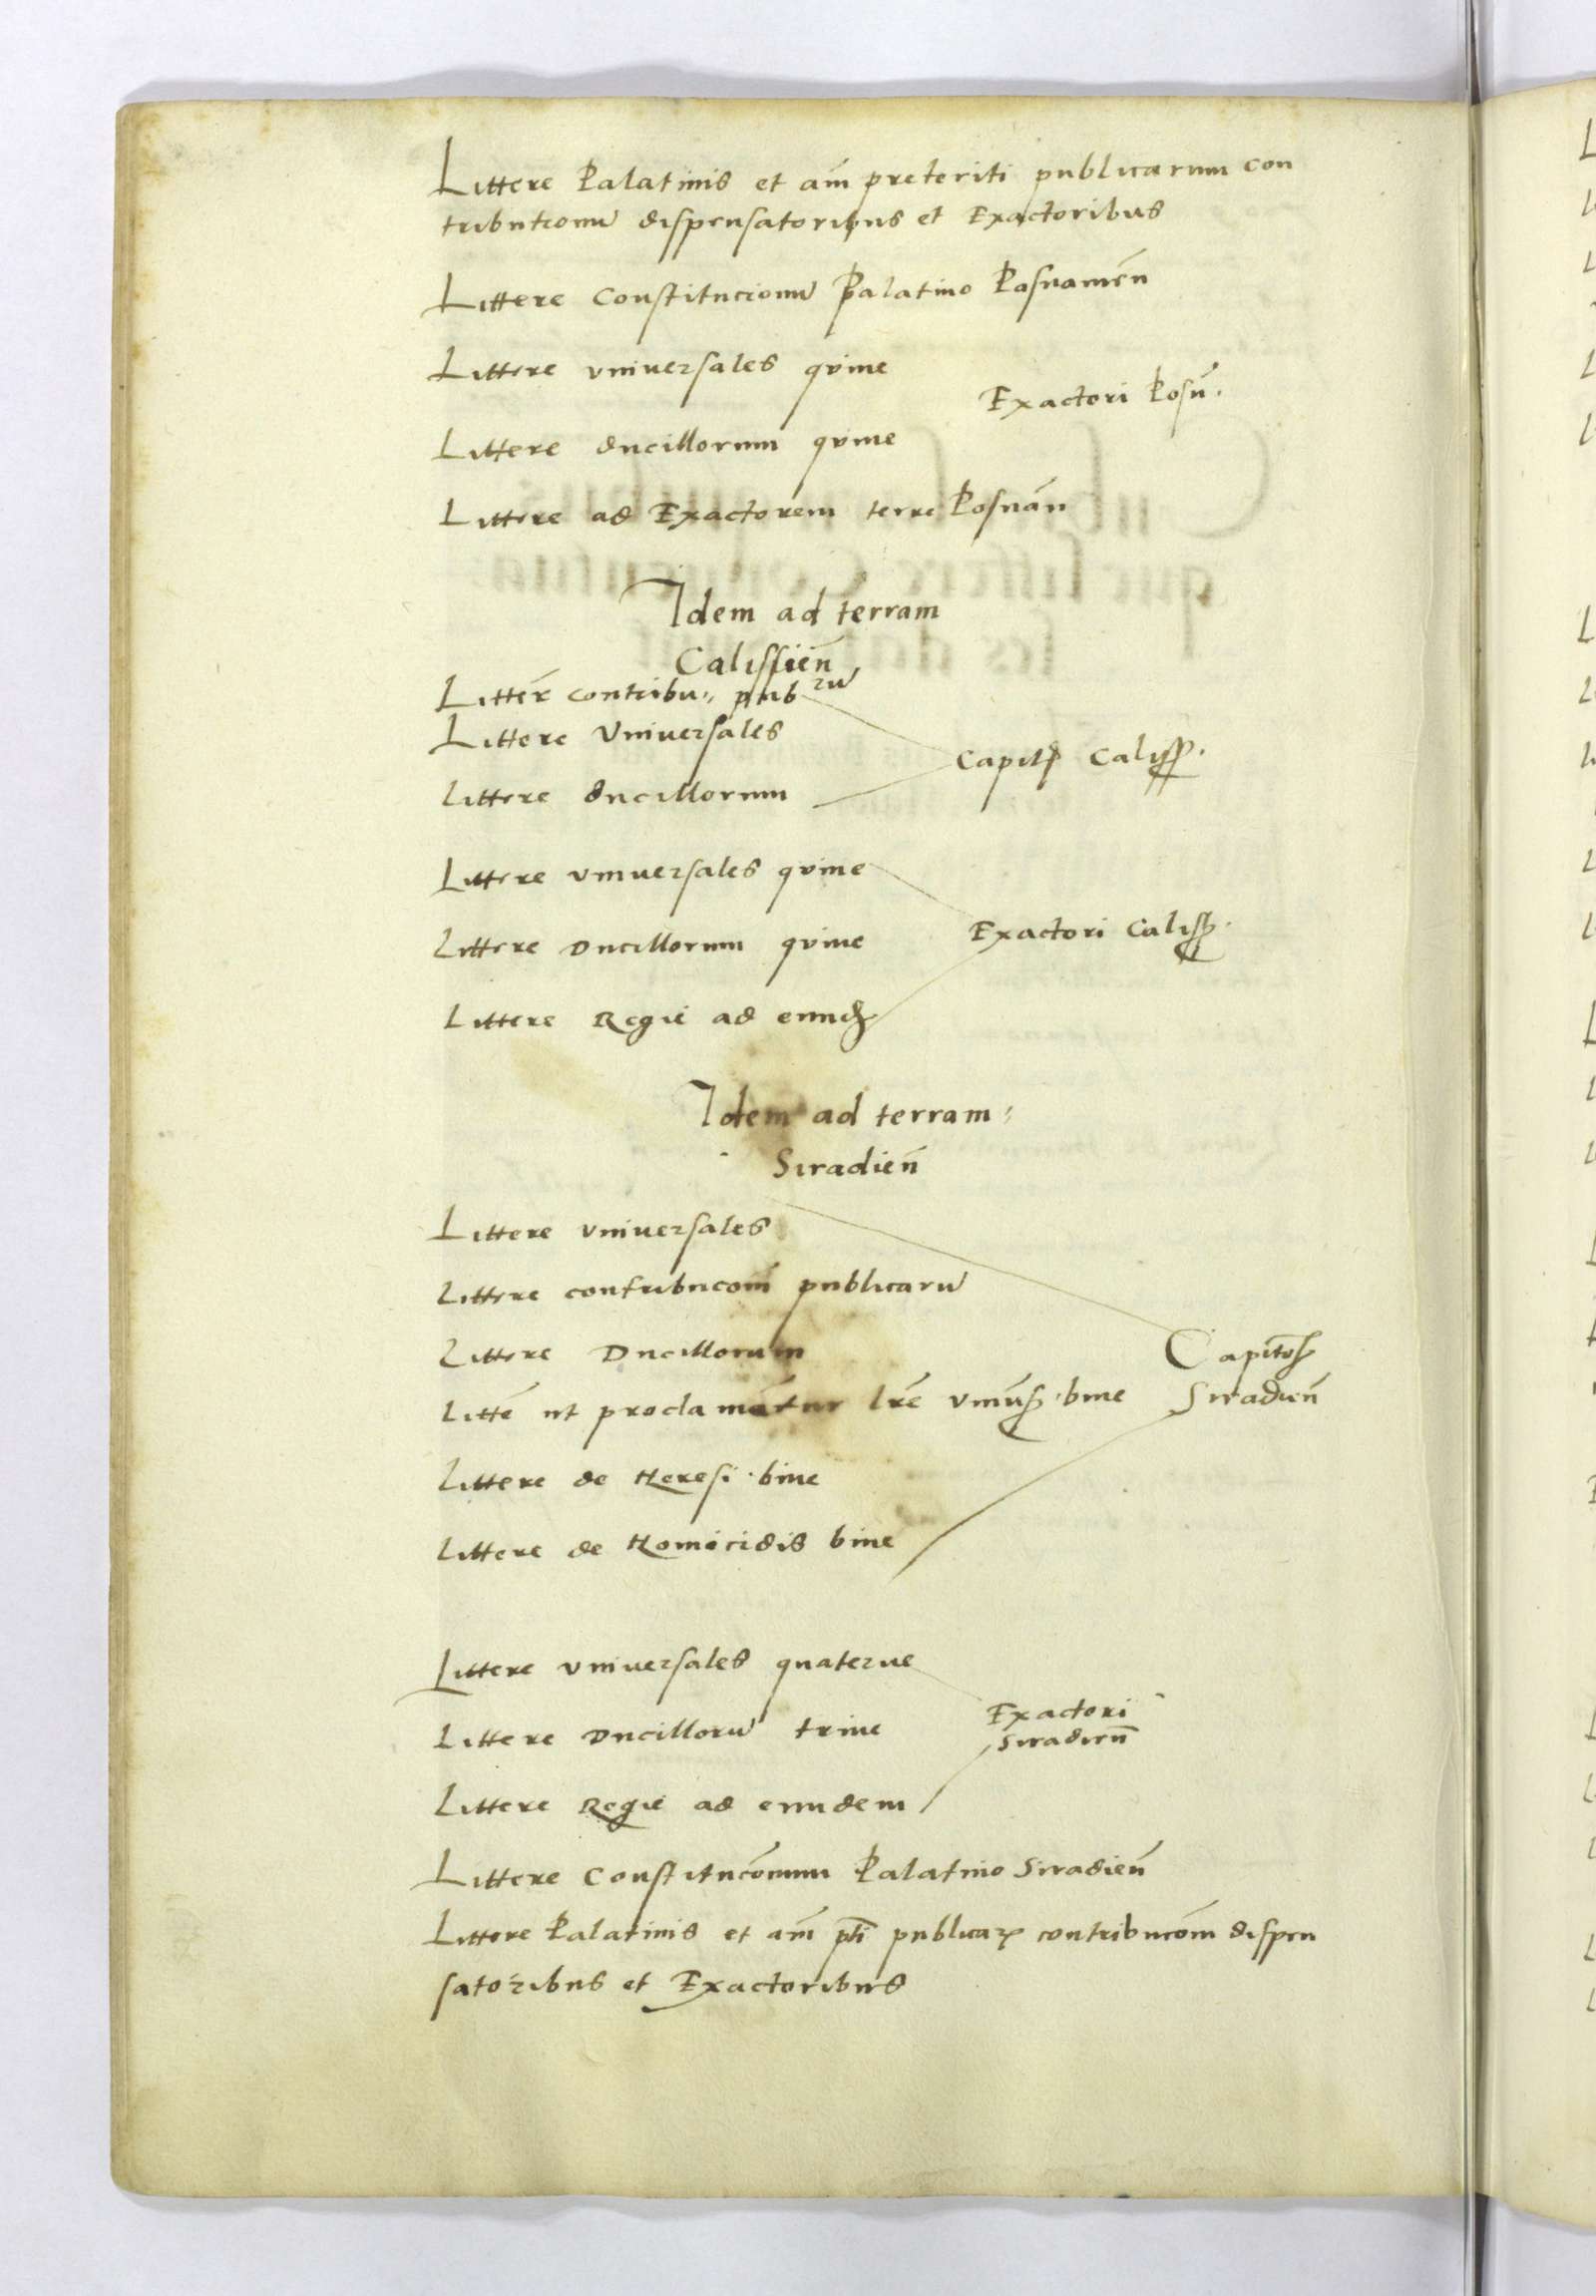 Littere Palatinis et am̃ preteriti publicarum con
tributionũ dispensatoribus et Exactoribus
Littere Constitucionũ Palatino Posnameñ
Littere vniuersales qvine
Exactori Posñ.
Littere ducillorum qvine
Littere ad Exactorem terre Posnañ
Idem ad terram
Calissieñ
Litter̃ contribu: pub rũ
Littere Vniuersales
Capit Caliss.
Littere ducillorum
Littere vniuersales qvine
Littere Ducillorum qvine
Exactori Caliss.
Littere Regie ad eund
Idem ad terram:
Siradieñ
Littere vniuersales
Littere contribucom̃ publicarũ
Littere Ducillorum
Capitoſ
Litte͂ ut proclamãtur lrẽ vniũs bine Siradieñ
Littere de Heresi bine
Littere de Homicidis bine
Littere vniuersales quaterne
Exactori
Siradieñ
Littere Ducillorũ trine
Littere Regie ad eundem
Littere Constitucõnum Palatino Siradieñ
Littere Palatinis et am̃ pt̃i publicaꝝ contribucom̃ dispen
satoribus et Exactoribus